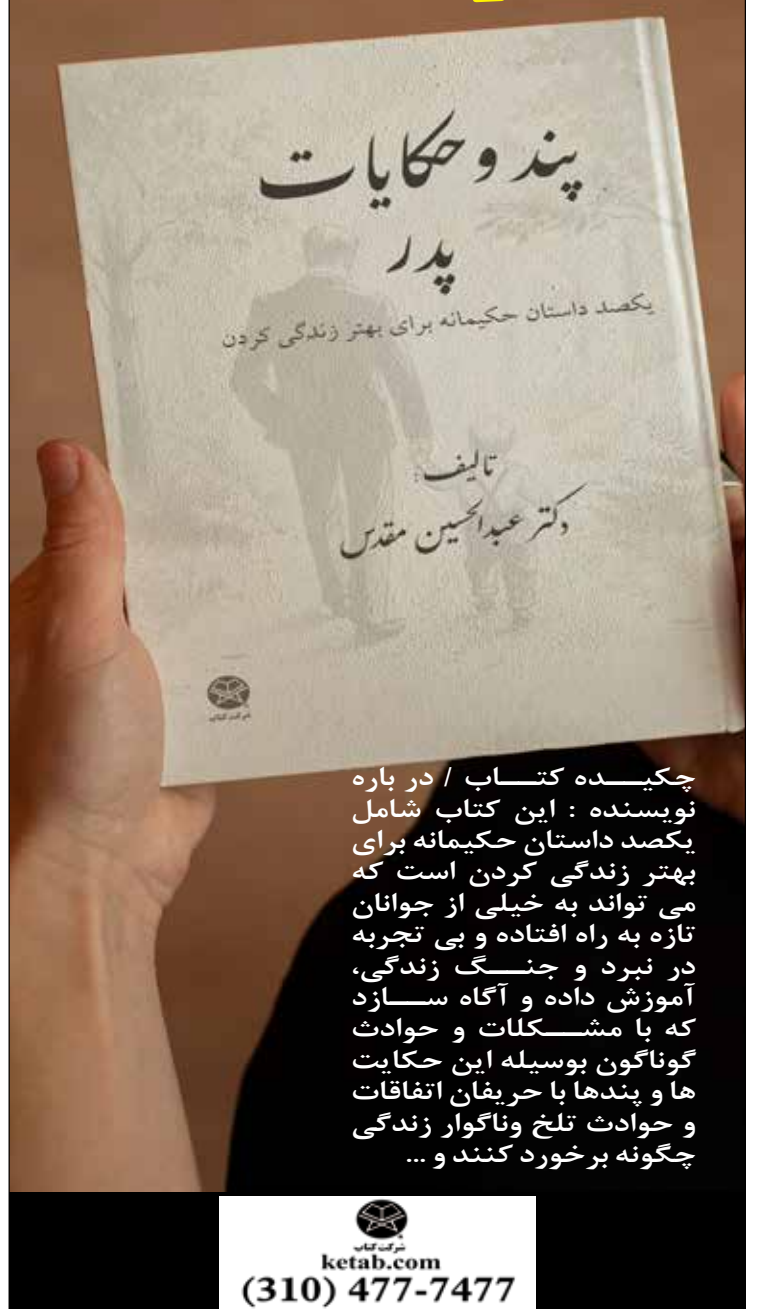 پند و حکایات
پدر
یکصد داستان حکیمانه برای بهتر زندگی کردن
تالیف:
دکتر عبدالحسین مقدس
شرکت کتاب
چکیــــده کتــــاب / در باره
نویسنده : این کتاب شامل
یکصد داستان حکیمانه برای
بهتر زندگی کردن است که
می تواند به خیلی از جوانان
تازه به راه افتاده و بی تجربه
در نبرد و جنــــگ زندگی،
آموزش داده و آگاه ســــازد
که با مشــــکلات و حوادث
گوناگون بوسیله این حکایت
ها و پندها با حریفان اتفاقات
و حوادث تلخ وناگوار زندگی
چگونه برخورد کنند و ...
شرکت کتاب
ketab.com
(310) 477-7477